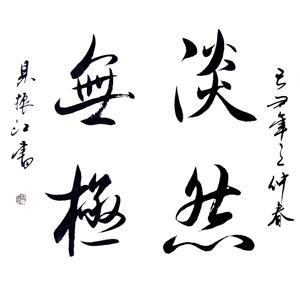 己丑年之仲春
淡然
無極
吳振江書